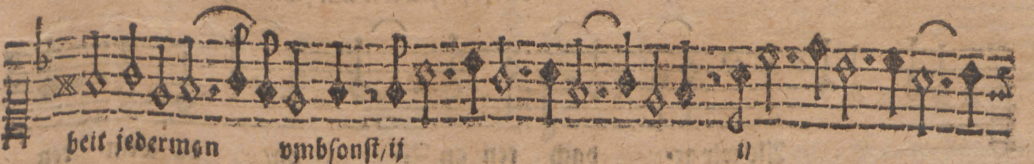 heit jederman vmbſonſt/ij ij